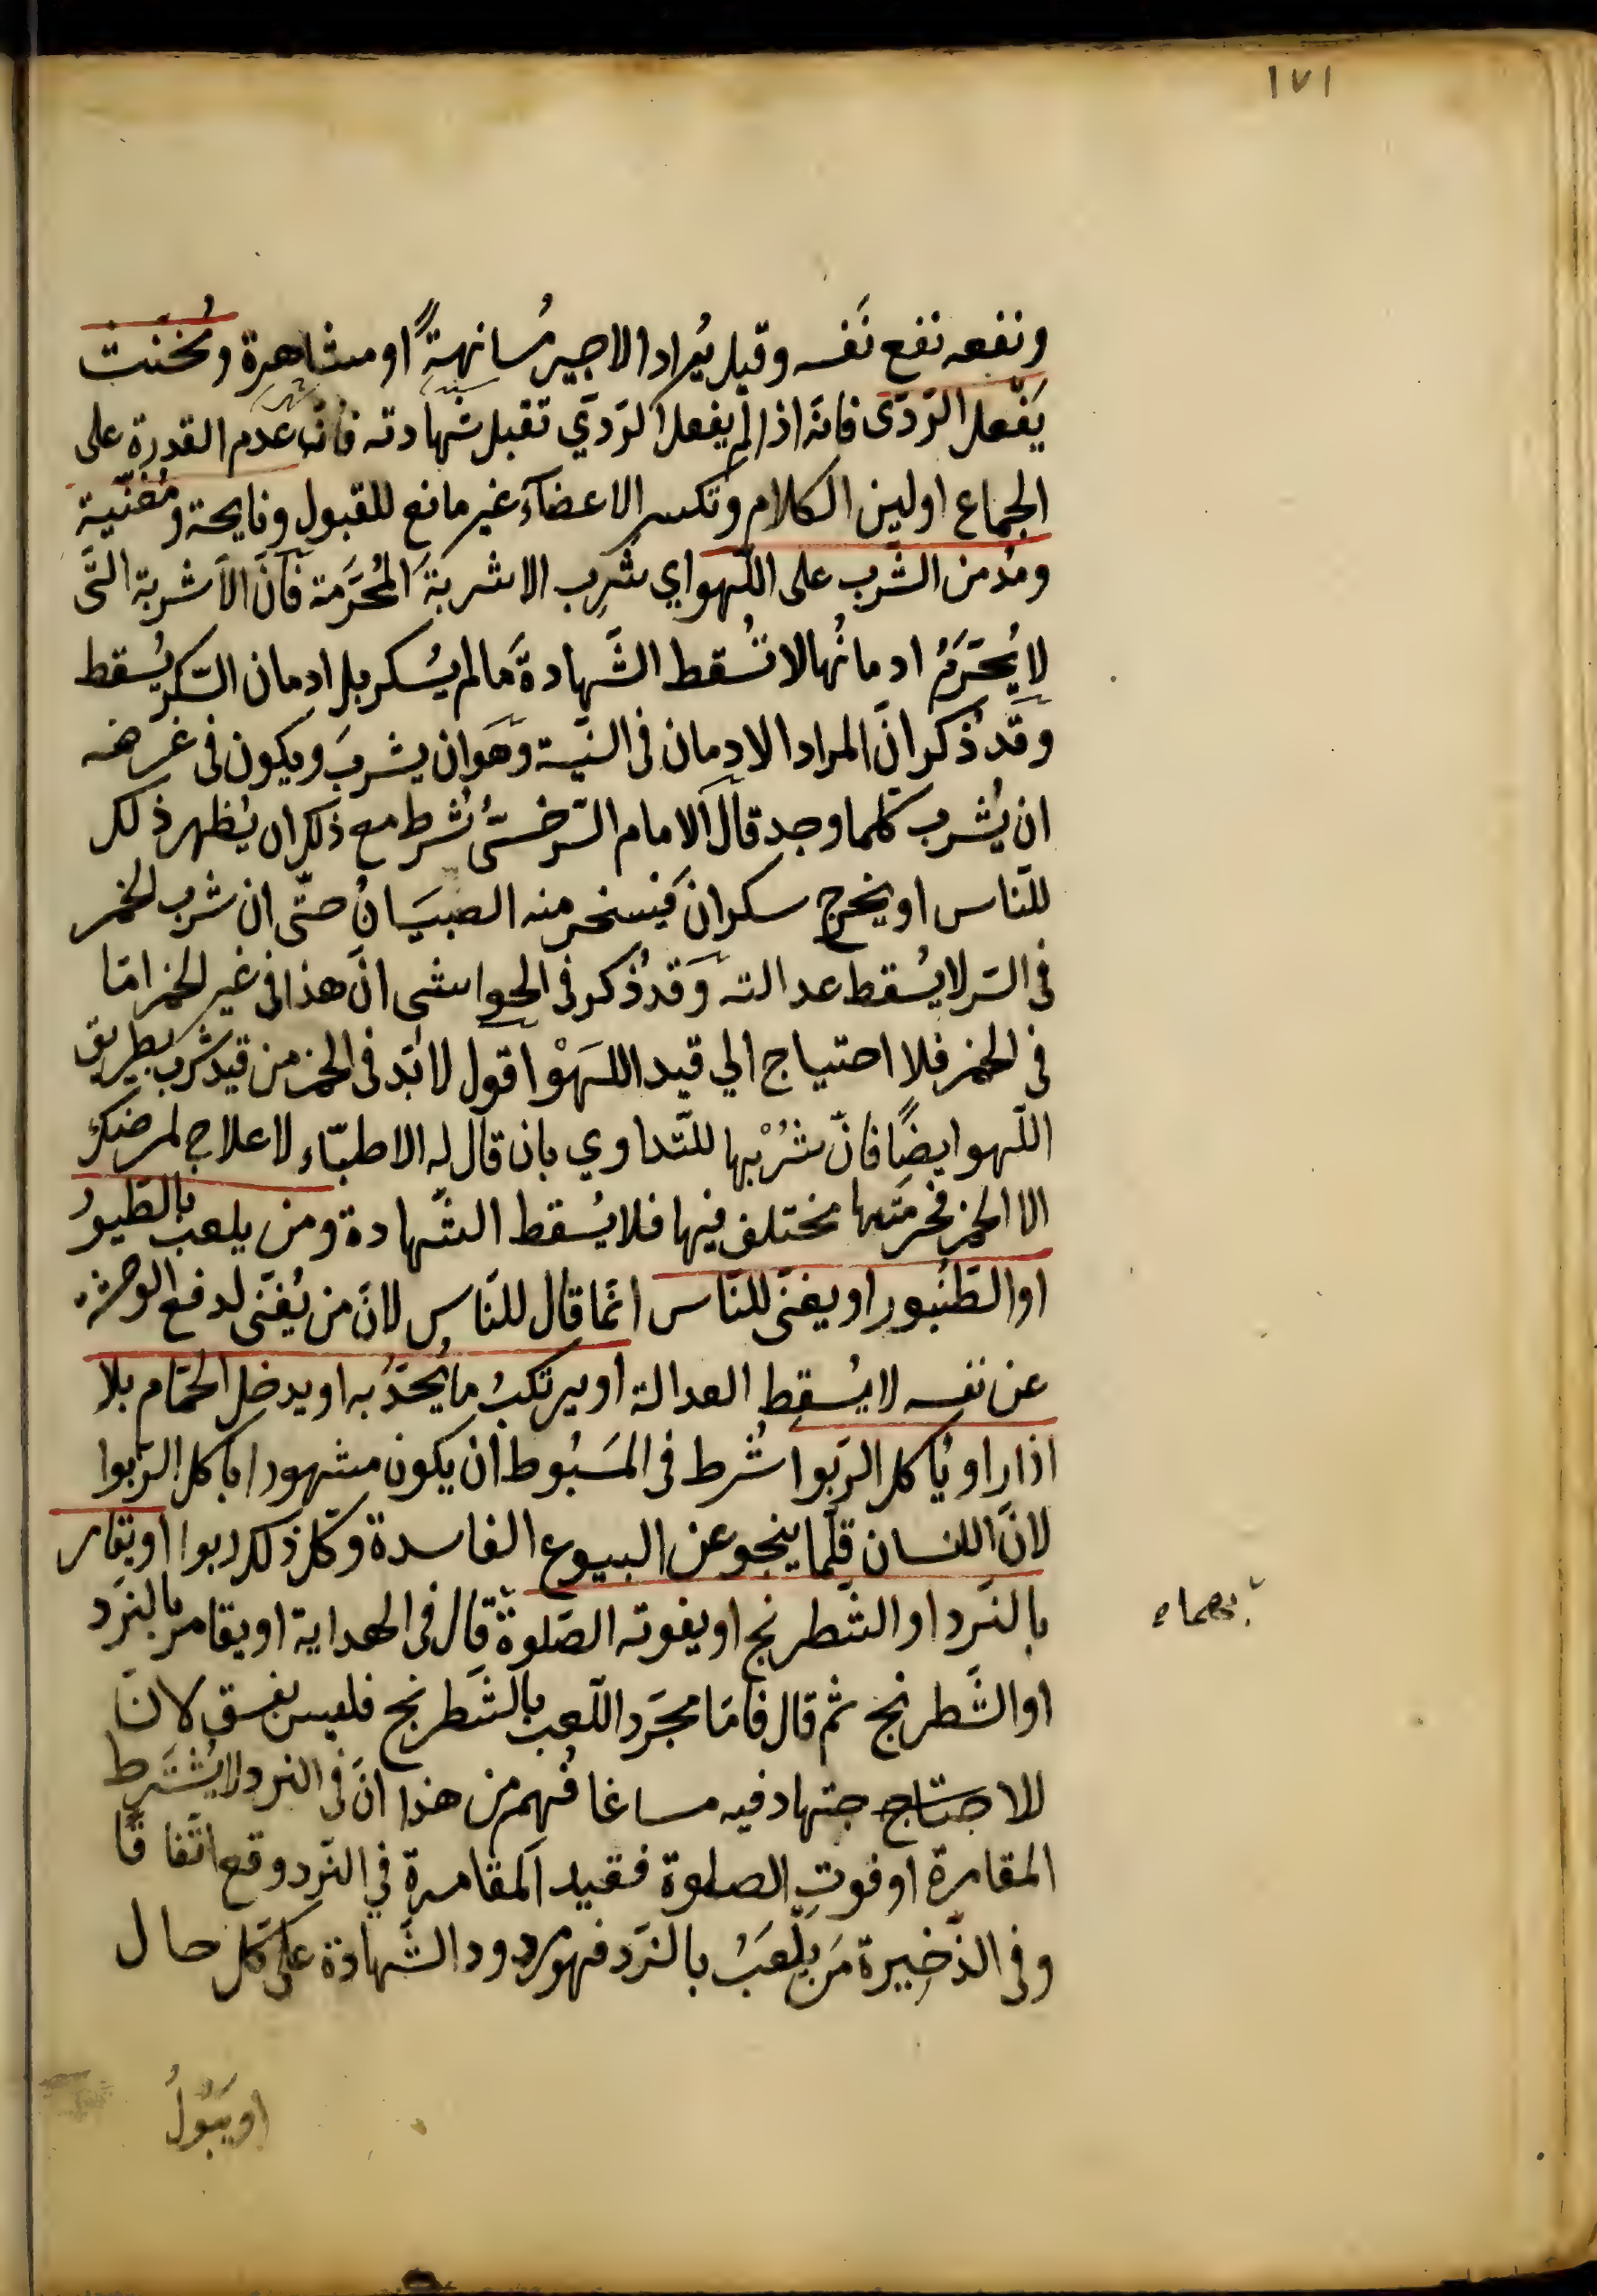 ١٧١
ونفعه نفع نَفسه وقيل يُراد الاجير مُسانهةً او مشاهرة ومُخنّث
يَفْعل الرَدىّ فانّه اذا لم يفعل الرَدىّ تقبل شهادته فانّ عدم القدرة على
الجماع او لين الكلام وتكسر الاعضآء غير مانع للقبول ونايحة ومُغنّية
ومُدمن الشُّرب على اللّهو اي شُرب الاشربة المُحَرَّمة فانّ الاشربة الّتى
لا يُحَرَّم ادمانُها لا تُسقط الشَّهادةَ ما لم يُسكر بل ادمان السّكر يُسقط
وقَد ذُكر انّ المراد الادمان فى النيّة وهَو ان يشربَ ويكون فى غرضه
ان يُشرب كلما وجد قال الامام السّرخسىُّ شُرط مع ذلك ان يُظهر ذلك
للنّاس او يخرج سكرانَ فيسخر منه الصبيَانُ حتّى ان شرب الخمر
فى السّر لا يُسقط عدالته وقَد ذُكر فى الحواشى انّ هذا فى غير الخمر امّا
فى الخمر فلا احتياج الي قيد اللَهوْ اقول لا بُدّ فى الخمر من قيد شرب بطريق
اللّهو ايضًا فانّ شُرْبها للتّداوي بان قال له الاطبّاء لا علاج لمرضك
الا الخمر فحُرمَتها مختلف فيها فلا يُسقط الشّهادة ومن يلعب بالطّيور
او الطّنبور او يغنّى للنّاس انّما قال للنّاس لانّ من يُغنّى لدفع الوحشة
عن نفسه لا يُسقط العدالة او يرتكبُ ما يُحَدُّ به او يدخل الحمّام بلا
اذار او يأكل الرّبوا شُرط فى المَبسُوط ان يكون مشهورا باكل الرّبوا
لانّ الانسان قلّما ينجو عن البيوع الفاسدة وكلّ ذلك ربوا او يقامر
بالنَّرد او الشّطرنج او يفوته الصّلوة قال فى الهداية او يقامر بالنّرد
او الشّطرنج ثم قال فامّا مجرّد اللّعب بالشّطرنج فليس بفسق لانّ
للاجتهاد فيه مساغا فُهم من هذا انّ فى النرد لا يُشترط
المقامرة او فوت الصلوة فقيد المقامرة في النّرد وقع اتّفاقًا
وفى الذّخيرة مَن يلعَبُ بالنّرد فهو مردود الشّهادة على كلّ حال
او يَبُولُ